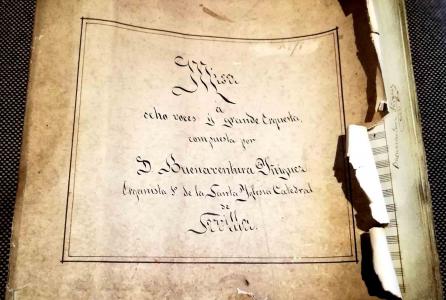 Misa
a
ocho voces y grande Orquesta,
compuesta por
D. Buenaventura Yñiguez
Organista 1º de la Santa Yglesia Catedral
de
Sevilla.